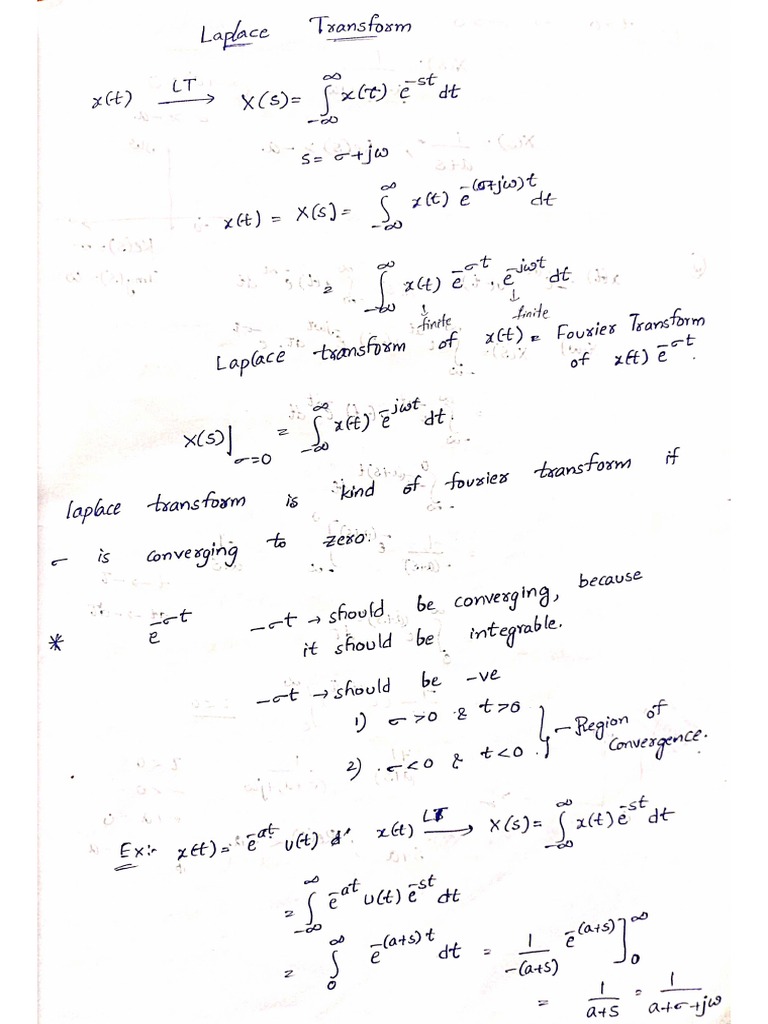 Laplace Transform
x(t) —LT→ X(s) = ∫_{-∞}^{∞} x(t) e^{-st} dt
s = σ+jω
x(t) = X(s) = ∫_{-∞}^{∞} x(t) e^{-(σ+jω)t} dt
= ∫_{-∞}^{∞} x(t) e^{-σt} . e^{-jωt} dt
↓ finite ↓ finite
Laplace transform of x(t) = Fourier Transform
of x(t) e^{-σt}.
X(s)|_{σ=0} = ∫_{-∞}^{∞} x(t) e^{-jωt} dt.
laplace transform is kind of fourier transform if
σ is converging to zero.
* e^{-σt} -σt → should be converging, because
it should be integrable.
-σt → should be -ve
1) σ>0 & t>0 } - Region of
2) σ<0 & t<0 } Convergence.
Ex:- x(t) = e^{-at} u(t) x(t) —LT→ X(s) = ∫_{-∞}^{∞} x(t) e^{-st} dt
= ∫_{-∞}^{∞} e^{-at} u(t) e^{-st} dt
= ∫_{0}^{∞} e^{-(a+s)t} dt = 1/-(a+s) e^{-(a+s)} ]_{0}^{∞}
= 1/a+s = 1/a+σ+jω